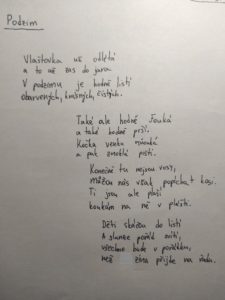 Podzim
Vlaštovka už odlétá
a to už zas do jara
V podzimu je hodně listí
obarvených, krásných, čistých.
Také ale hodně fouká
a také hodně prší.
Kočka venku mňouká
a pak zmoklá prští.
Konečně tu nejsou vosy,
můžou nás však popíchat kosi.
Ti jsou ale plaší
koukám na ně v plášti.
Děti skáčou do listí
A slunce pořád svítí,
všechno bude v pořádku,
než zima přijde na řadu.